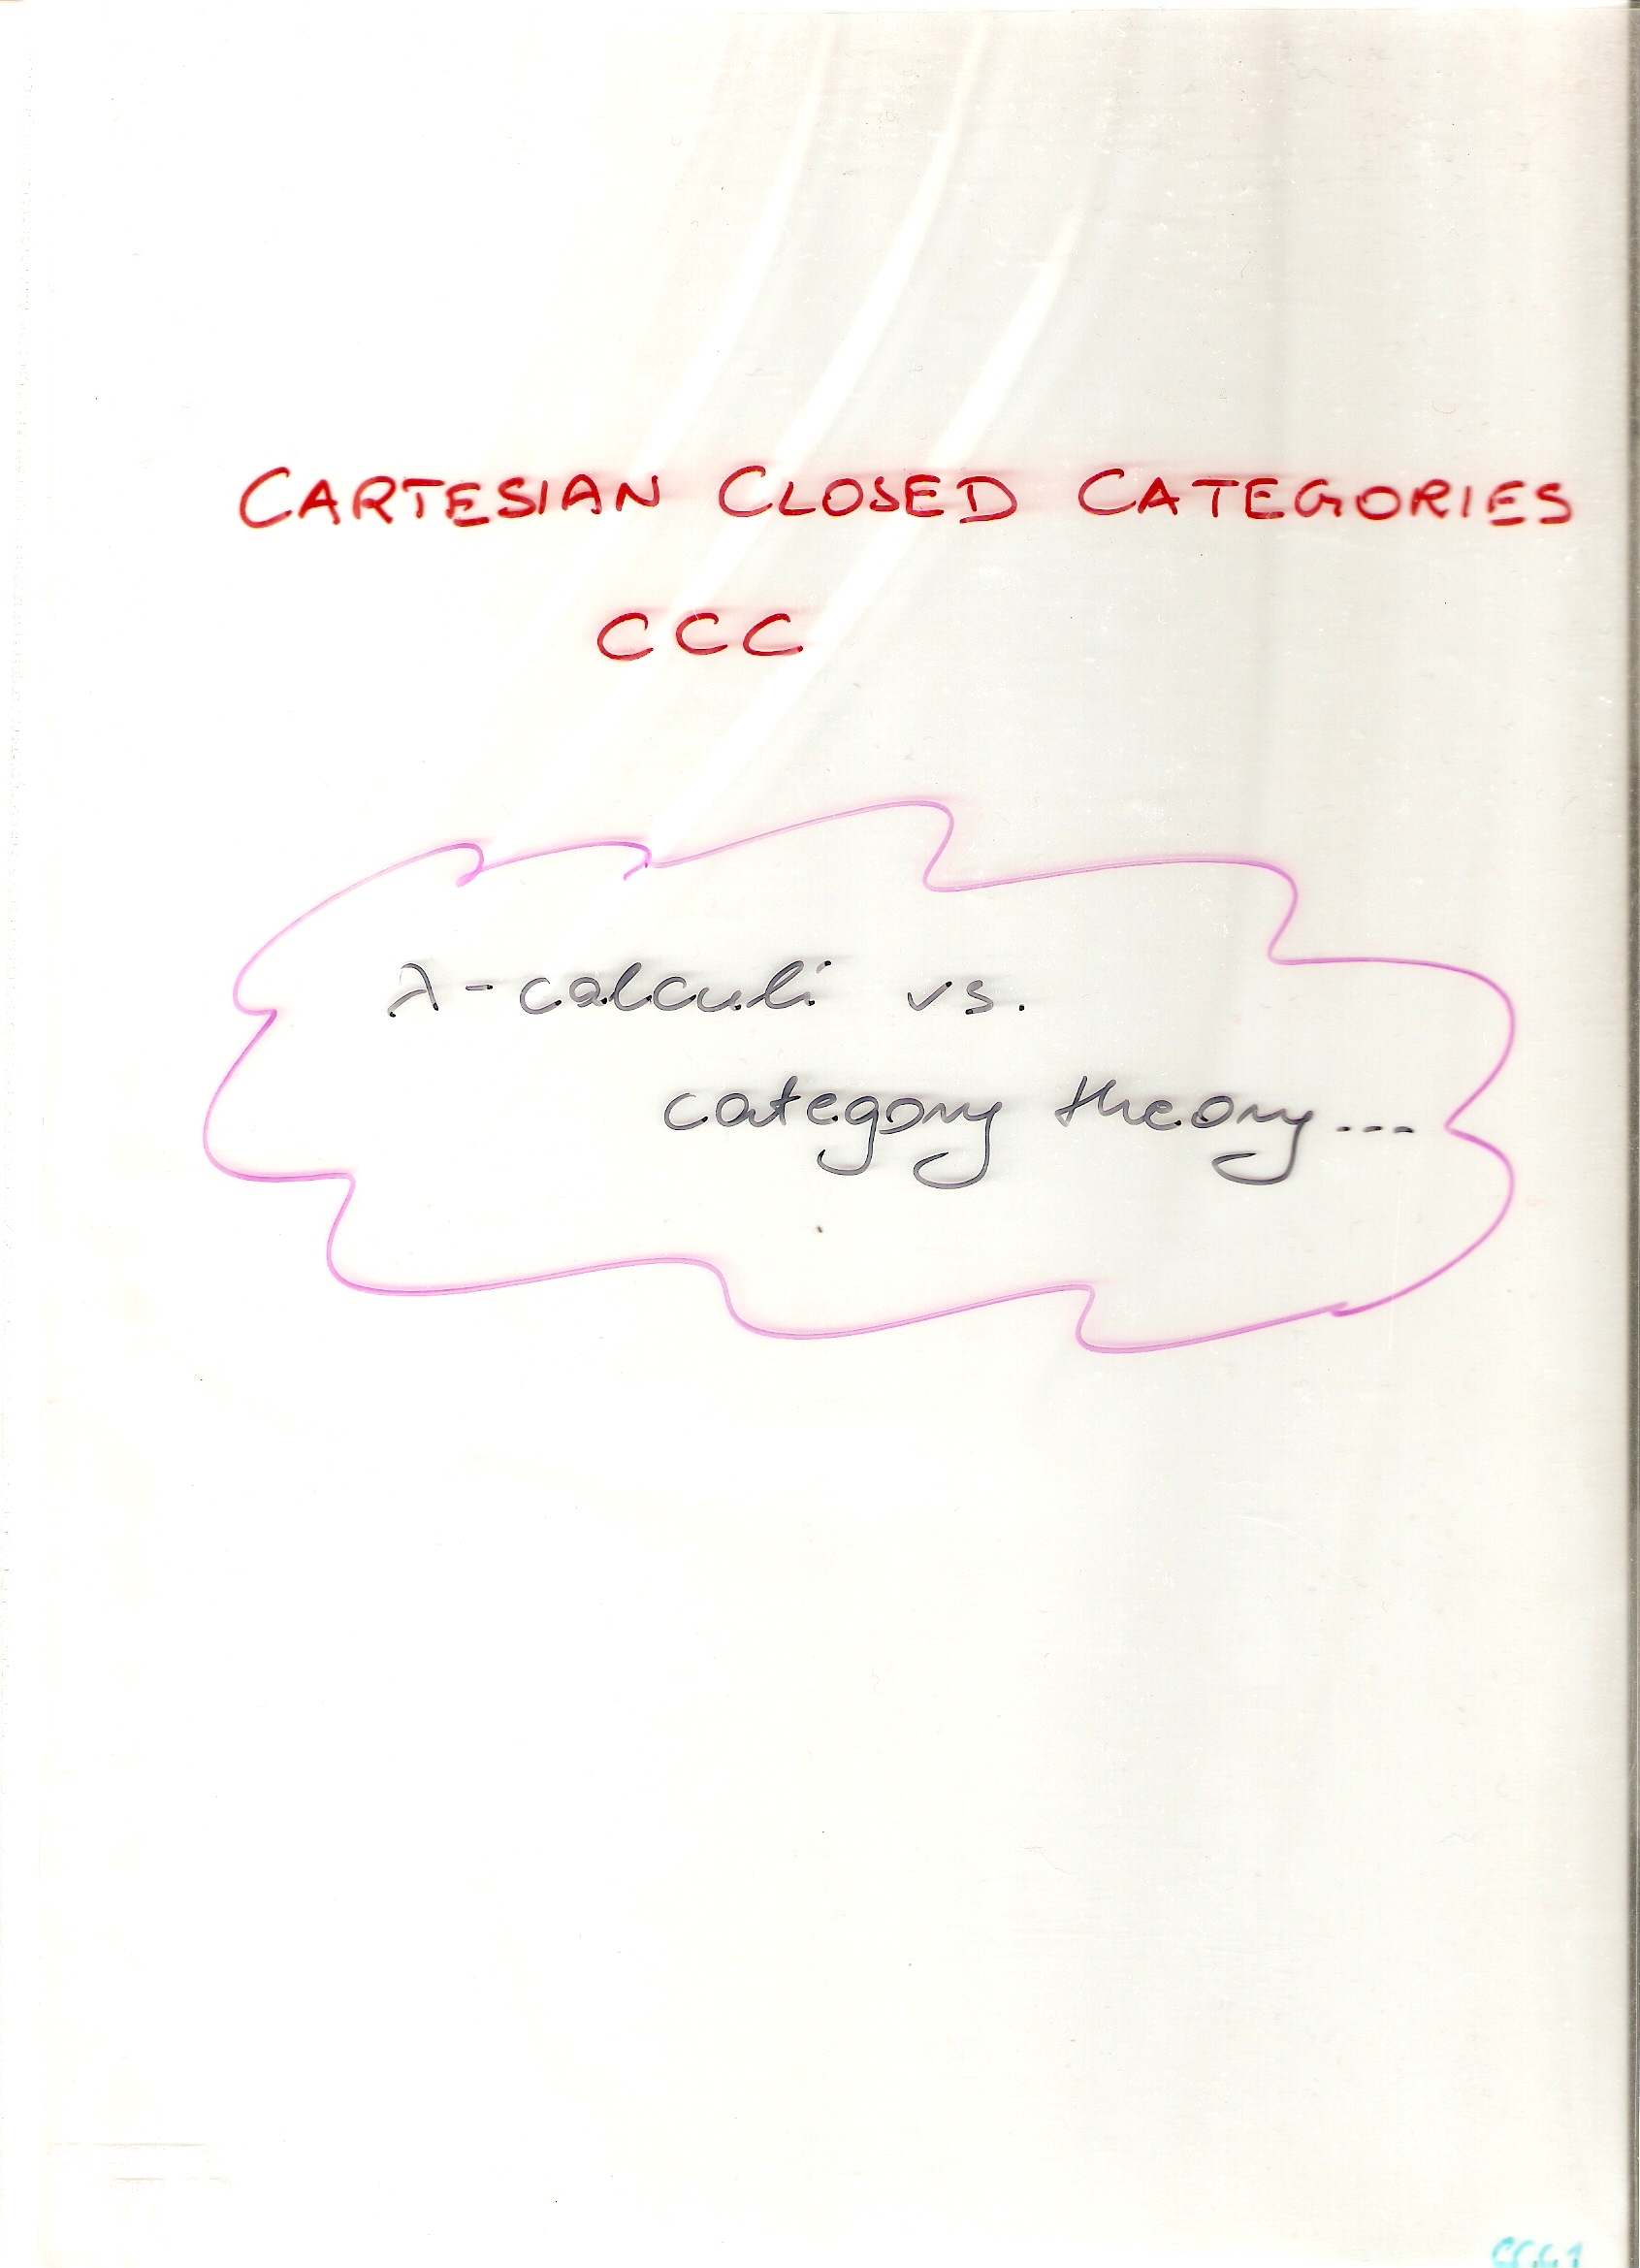 CARTESIAN CLOSED CATEGORIES
CCC
λ-calculi vs.
category theory...